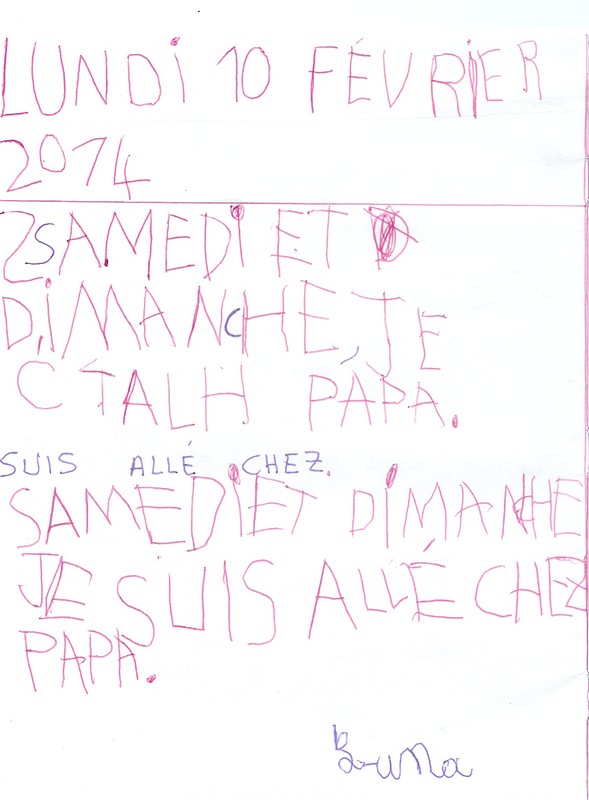 LUNDI 10 FÉVRIER
2014
SAMEDI ET
DIMANCHE, JE
C TALH PAPA.
SUIS ALLÉ CHEZ.
SAMEDI ET DIMANCHE
JE SUIS ALLÉ CHEZ
PAPA.